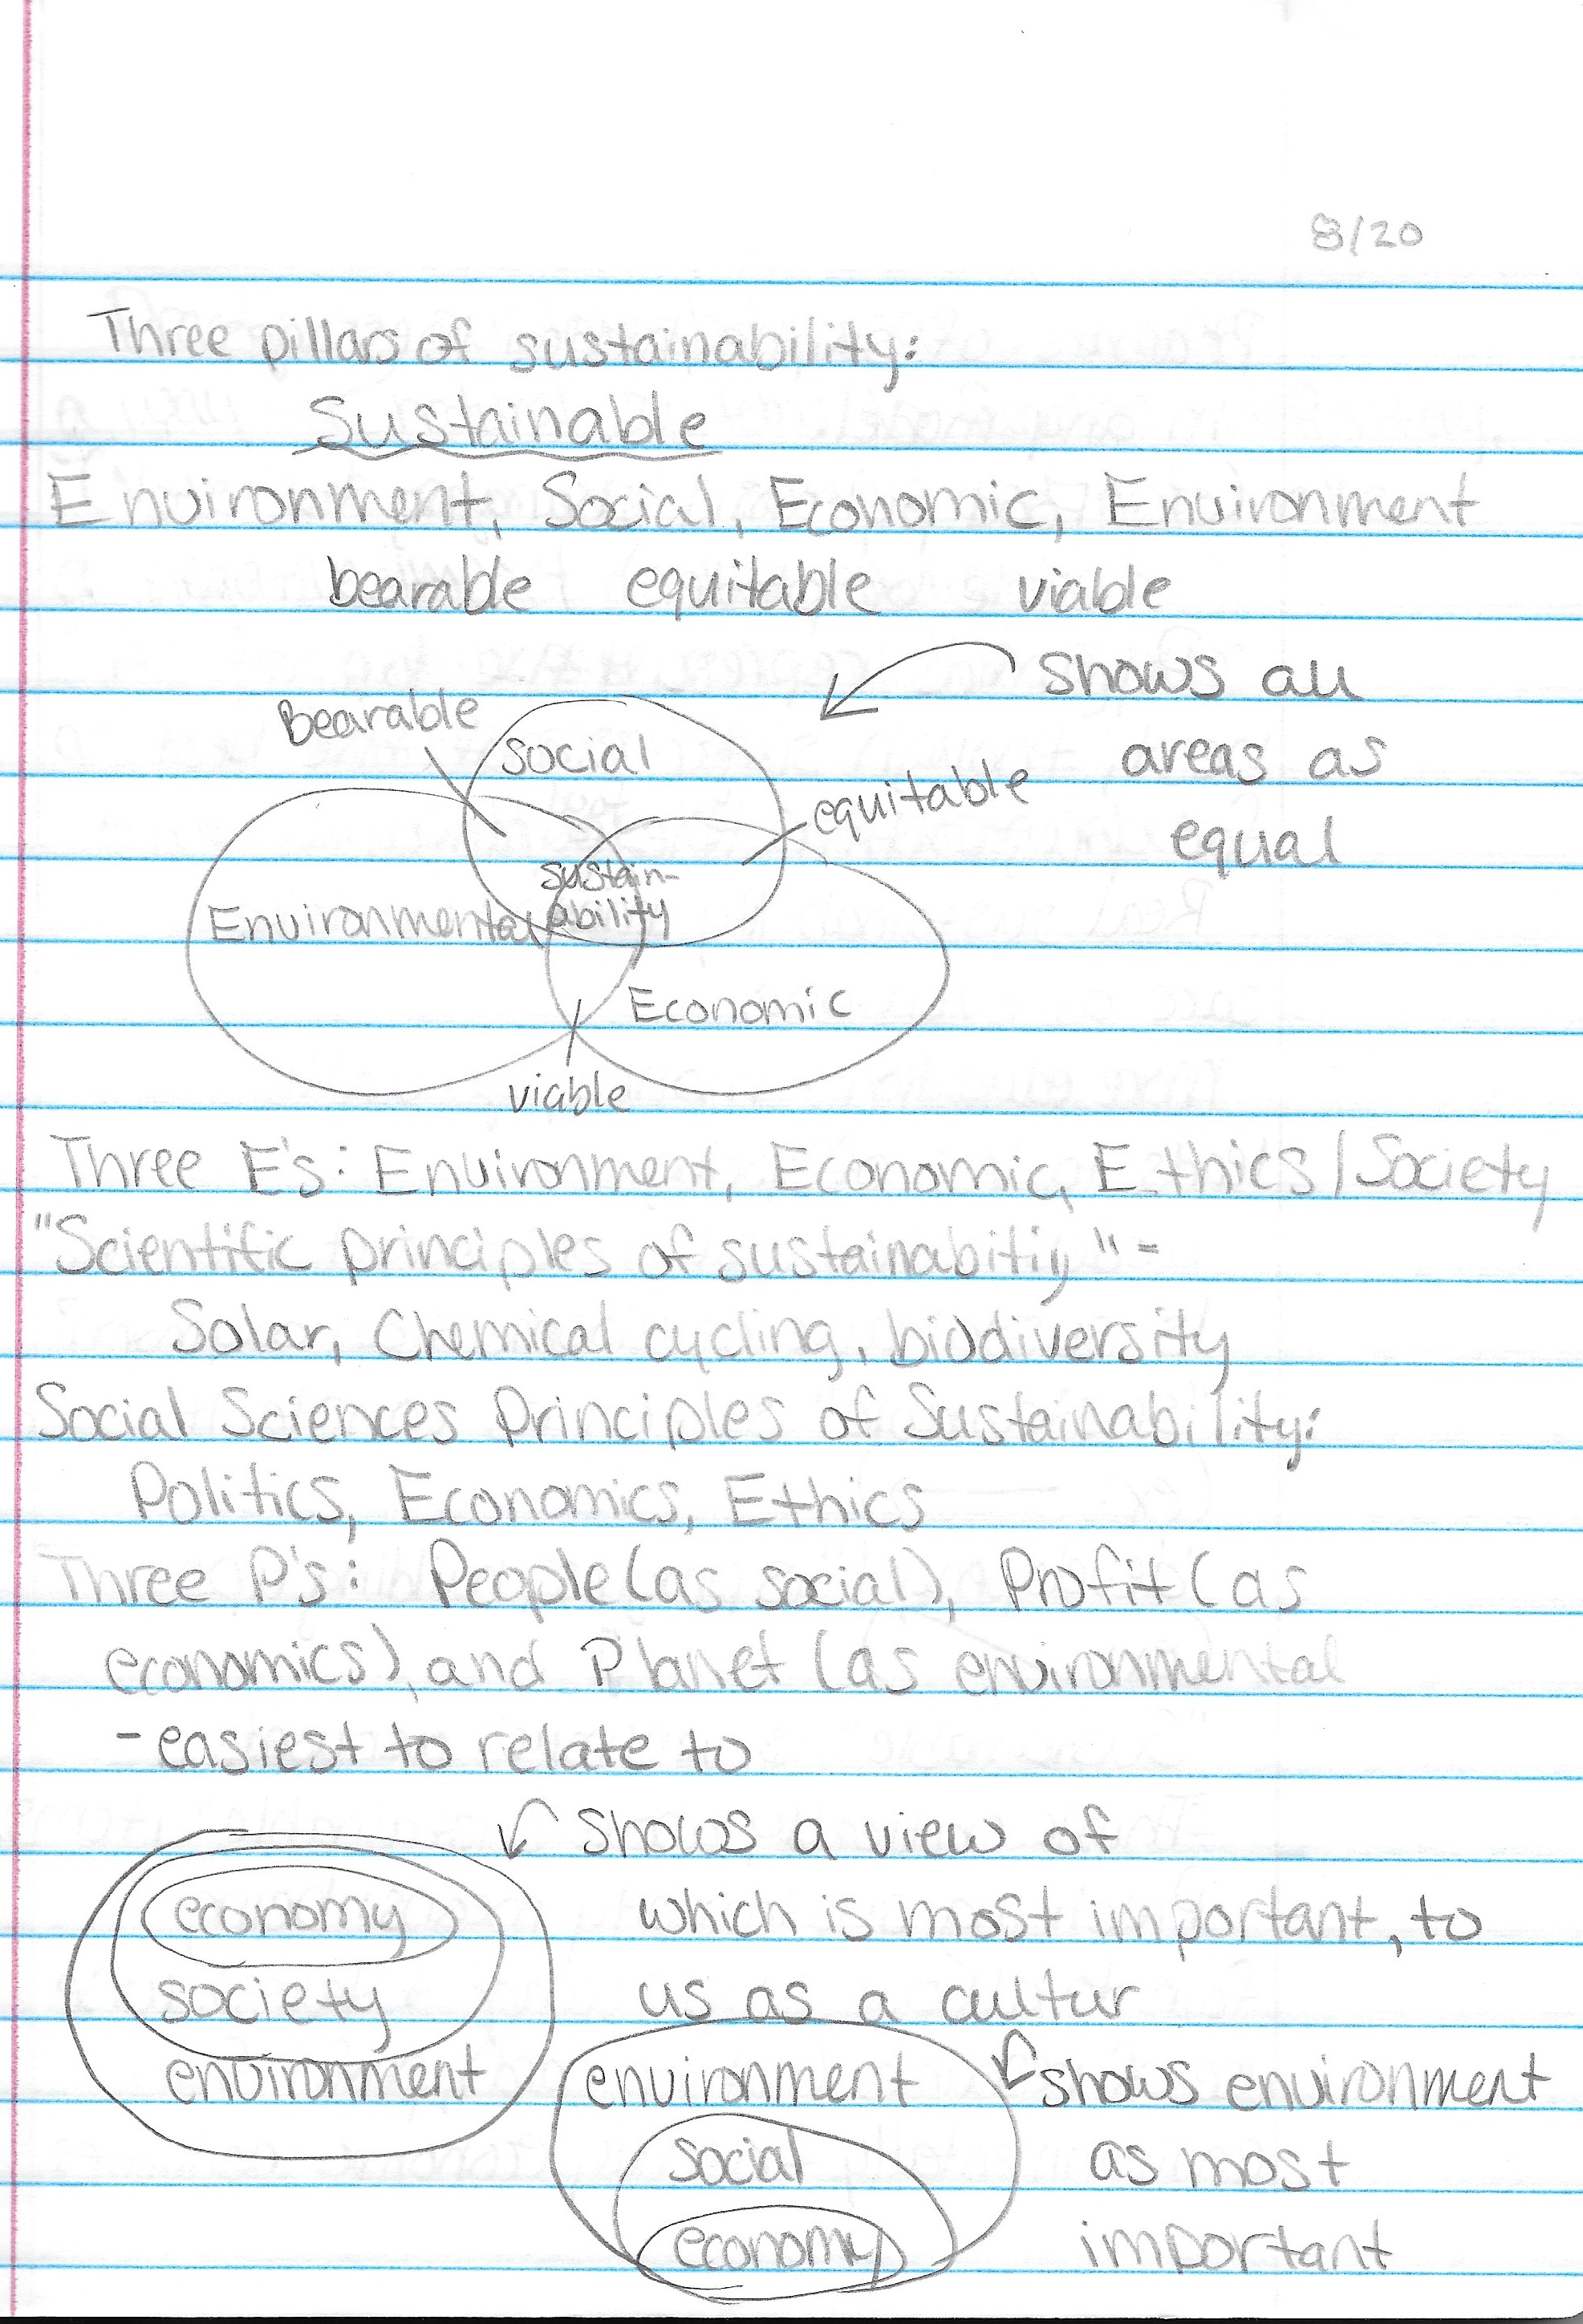 8/20
Three pillars of sustainability:
Sustainable
Environment, Social, Economic, Environment
bearable equitable viable
shows all
areas as
equal
Bearable
social
equitable
sustain-
ability
Environmental
Economic
viable
Three E's: Environment, Economic, Ethics/Society
"Scientific principles of sustainabitiy" =
Solar, Chemical cycling, biodiversity
Social Sciences Principles of Sustainability:
Politics, Economics, Ethics
Three P's: People (as social), Profit (as
economics), and Planet (as environmental
- easiest to relate to
shows a view of
which is most important, to
us as a cultur
economy
society
environment
environment
social
economy
shows environment
as most
important